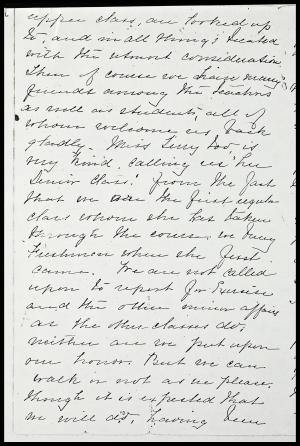 upper class, are looked up
to, and in all things treated
with the utmost consideration.
Then of course we have many
friends among the teachers
as well as students, all of
whom welcome us back
gladly. Miss too, is
very kind, calling us "her
Senior Class." From the fact
that we are the first regular
class whom she has taken
through the course, we being
Freshmen when she first
came. We are not called
upon to report for Exercise
and the other minor affairs
as the other classes do,
neither are we put upon
our honor. But we can
walk or not as we please,
though it is expected that
we will do so, having been